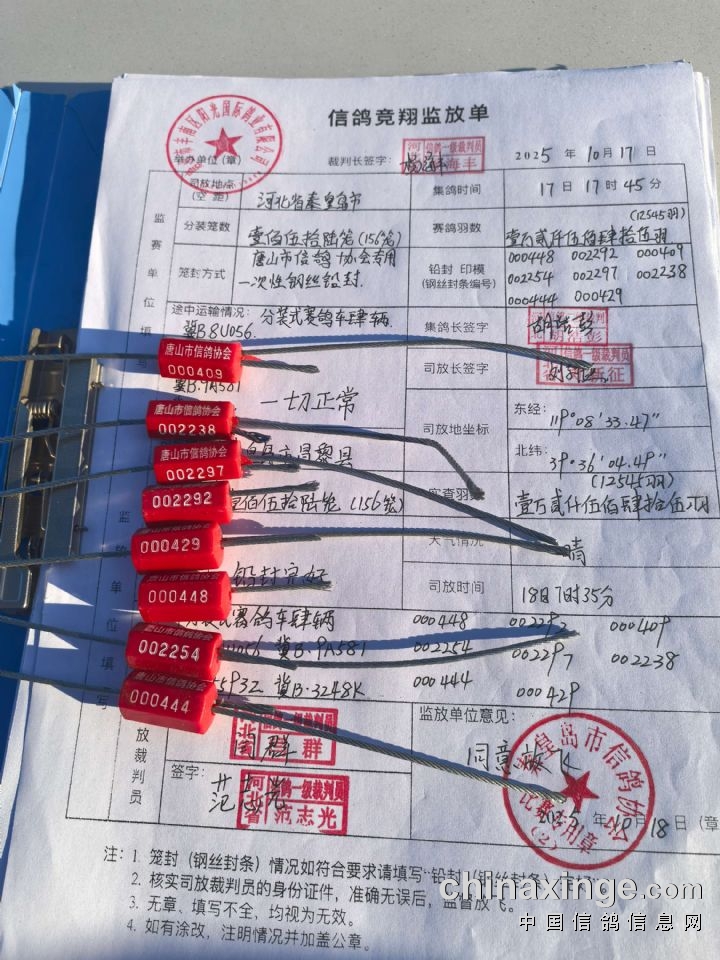 信鸽竞翔监放单
举办单位(章) 裁判长签字: 2025 年 10 月 17 日
丰南区阳光国际鸽业有限公司
河 信鸽一级裁判员
司放地点 (空 距) 河北省秦皇岛市 集鸽时间 17日 17时 45分
分装笼数 壹佰伍拾陆笼(156笼) 赛鸽羽数 壹万贰仟伍佰肆拾伍羽 (12545羽)
笼封方式 唐山市信鸽协会专用一次性钢丝铅封. 铅封 印模 (钢丝封条编号) 000448 002292 000409
002254 002297 002238
000444 000429
途中运输情况: 分装式赛鸽车肆辆. 集鸽长签字
冀B8U056.
司放长签字
唐山市信鸽协会
000409
一切正常
司放地坐标 东经: 119°08'33.47"
北纬: 39°36'04.49"
唐山市信鸽协会
002238
唐山市信鸽协会
002297
昌黎县
002292
佰伍拾陆笼(156笼) 羽 (12545羽) 壹万贰仟伍佰肆拾伍羽
000429
天气情况 晴
铅封完好 司放时间 18日7时35分
000448
赛鸽车肆辆 000448 002292 000409
冀B·9A581 002254 002297 002238
唐山市信鸽协会
002254
593Z 冀B·3248K 000444 000429
唐山市信鸽协会
000444
监赛单位填
监放单位填写
放裁判员
监放单位意见:
同意放飞
信鸽一级裁判员
群
签字: 范志光
河北省 信鸽一级裁判员 范志光
皇岛市信鸽协会
比赛专用章
(2)
2025 年 10 月 18 日 (章
注: 1. 笼封(钢丝封条)情况如符合要求请填写"铅封(钢丝封条)
2. 核实司放裁判员的身份证件,准确无误后,监督放飞。
3. 无章、填写不全、均视为无效。
4. 如有涂改,注明情况并加盖公章。
chinaxinge.com
中国信鸽信息网